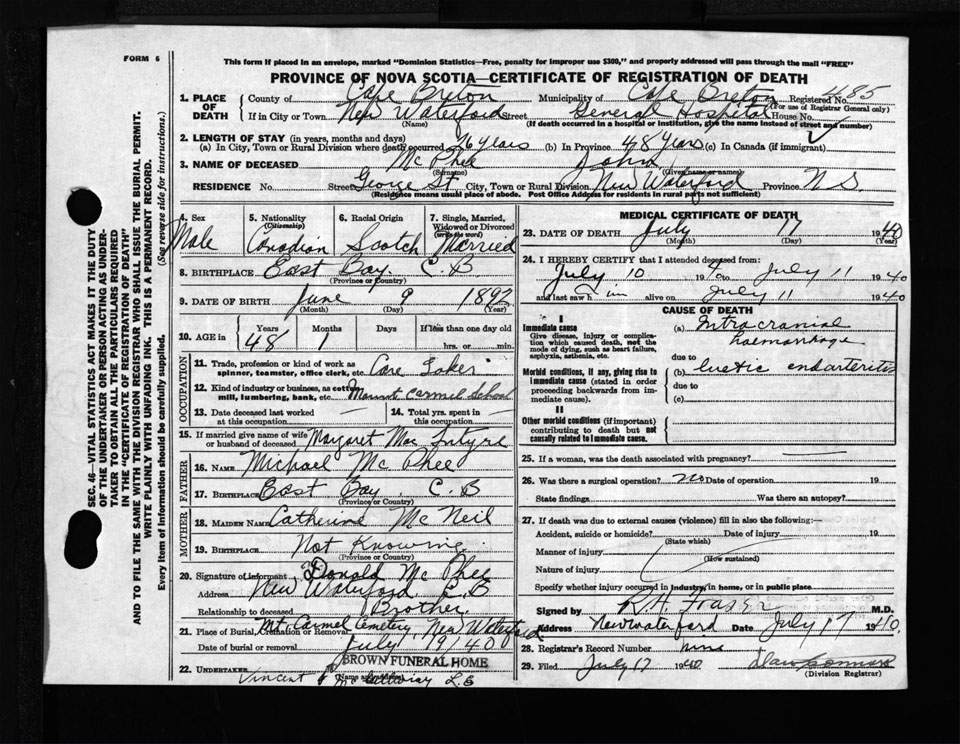 FORM 6
This form if placed in an envelope, marked "Dominion Statistics—Free, penalty for improper use $300," and properly addressed will pass through the mail "FREE"
PROVINCE OF NOVA SCOTIA—CERTIFICATE OF REGISTRATION OF DEATH
SEC. 46—VITAL STATISTICS ACT MAKES IT THE DUTY OF THE UNDERTAKER OR PERSON ACTING AS UNDERTAKER TO OBTAIN ALL THE PARTICULARS REQUIRED IN THE "CERTIFICATE OF REGISTRATION OF DEATH"
AND TO FILE THE SAME WITH THE DIVISION REGISTRAR WHO SHALL ISSUE THE BURIAL PERMIT.
WRITE PLAINLY WITH UNFADING INK. THIS IS A PERMANENT RECORD.
Every item of information should be carefully supplied. (See reverse side for instructions.)
1. PLACE OF DEATH County of Cape Breton Municipality of Cape Breton Registered No. 485
(For use of Registrar General only)
If in City or Town New Waterford Street General Hospital House No.
(Name) (If death occurred in a hospital or institution, give the name instead of street and number)
2. LENGTH OF STAY (in years, months and days)
(a) In City, Town or Rural Division where death occurred 26 years (b) In Province 48 years (c) In Canada (if immigrant)
3. NAME OF DECEASED McPhee John
(Surname) (Given name or names)
RESIDENCE No. Street George St. City, Town or Rural Division New Waterford Province N S
(Residence means usual place of abode. Post Office Address for residents in rural parts not sufficient)
4. Sex Male
5. Nationality (Citizenship) Canadian
6. Racial Origin Scotch
7. Single, Married, Widowed or Divorced (write the word) Married
8. BIRTHPLACE East Bay. C.B
(Province or Country)
9. DATE OF BIRTH June 9 1892
(Month) (Day) (Year)
10. AGE in Years 48 Months 1 Days If less than one day old hrs. or min.
OCCUPATION
11. Trade, profession or kind of work as spinner, teamster, office clerk, etc. Care Taker
12. Kind of industry or business, as cotton mill, lumbering, bank, etc. Mount Carmel School
13. Date deceased last worked at this occupation —
14. Total yrs. spent in this occupation —
15. If married give name of wife or husband of deceased Margaret Mac Intyre
FATHER
16. NAME Michael McPhee
17. BIRTHPLACE East Bay. C.B
(Province or Country)
MOTHER
18. MAIDEN NAME Catherine McNeil
19. BIRTHPLACE Not Knowing
(Province or Country)
20. Signature of informant Donald McPhee
Address New Waterford C B
Relationship to deceased Brother
21. Place of Burial, Cremation or Removal Mt. Carmel Cemetery, New Waterford
Date of burial or removal July 19/40
BROWN FUNERAL HOME
22. UNDERTAKER Vincent
(Name and address)
MEDICAL CERTIFICATE OF DEATH
23. DATE OF DEATH July 17 1940
(Month) (Day) (Year)
24. I HEREBY CERTIFY that I attended deceased from:
July 10 194 to July 11 1940
and last saw him alive on July 11 1940
CAUSE OF DEATH
I
Immediate cause
Give disease, injury or complication which caused death, not the mode of dying, such as heart failure, asphyxia, asthenia, etc.
(a) Intracranial haemorrhage
due to
Morbid conditions, if any, giving rise to immediate cause (stated in order proceeding backwards from immediate cause).
(b) luetic endarteritis
due to
(c)
II
Other morbid conditions (if important) contributing to death but not causally related to immediate cause.
25. If a woman, was the death associated with pregnancy? —
26. Was there a surgical operation? no Date of operation 19
State findings Was there an autopsy?
27. If death was due to external causes (violence) fill in also the following:
Accident, suicide or homicide? Date of injury 19
(State which)
Manner of injury
(How sustained)
Nature of injury
Specify whether injury occurred in industry, in home, or in public place
Signed by R.H. Fraser M.D.
Address New Waterford Date July 17 1940.
28. Registrar's Record Number nine
29. Filed July 17 1940
(Division Registrar)